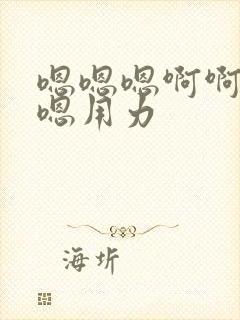 嗯嗯嗯啊啊
嗯用力
海圻